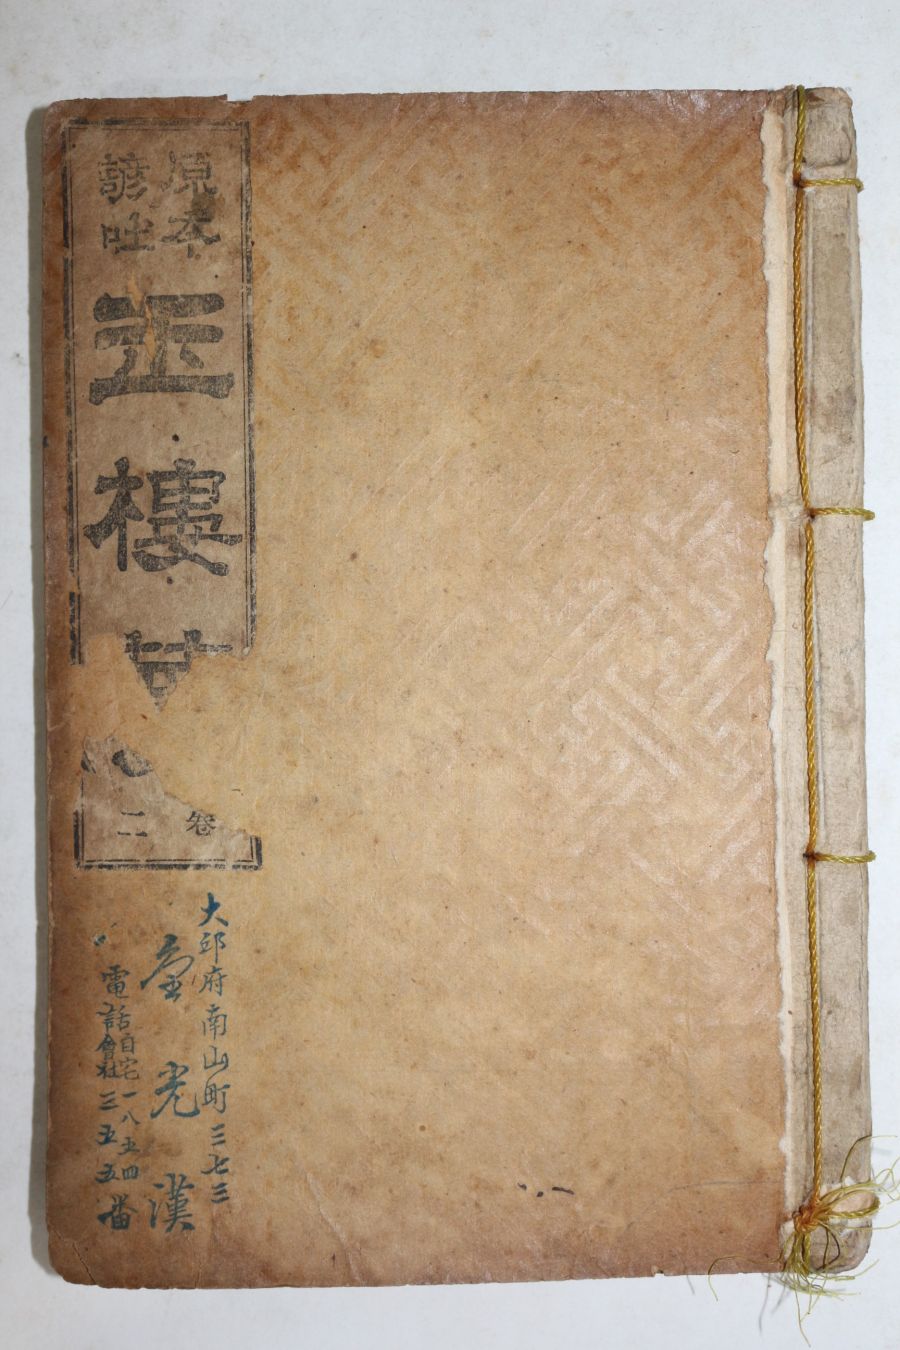 原本
諺吐
玉樓
卷
二
大邱府南山町三七三
光漢
電話自宅一八五四
會社三五五番